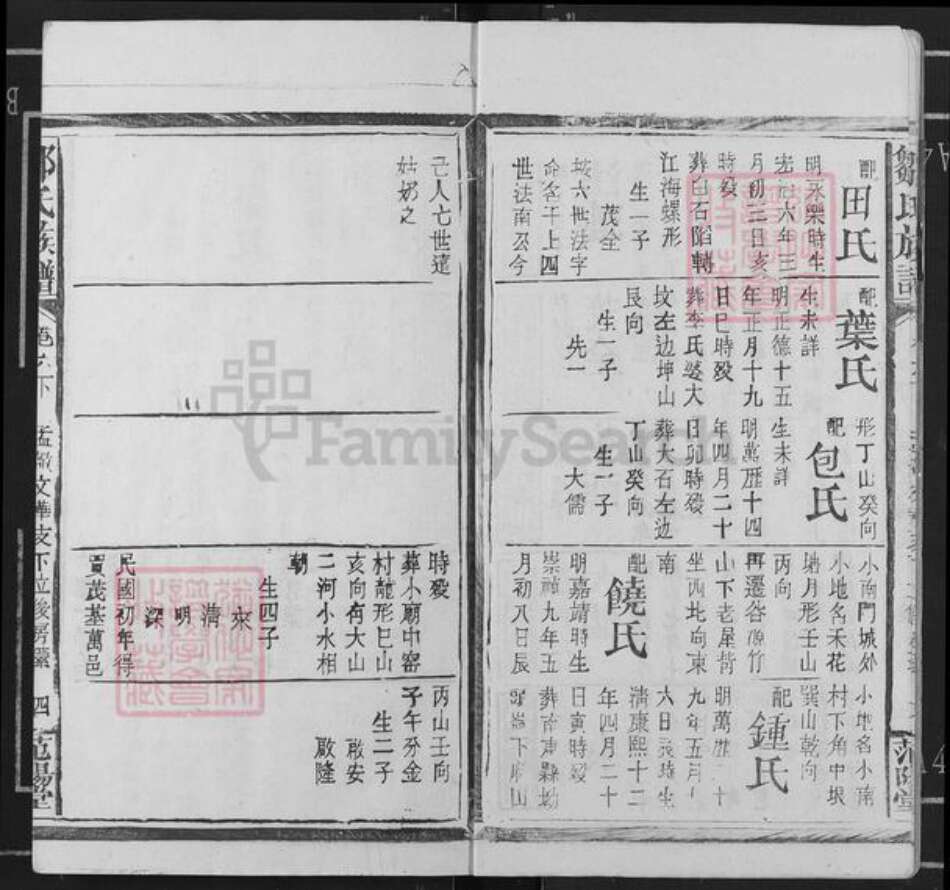 鄒氏族譜
配
田氏
明永樂時生
宏治六年三
月初三日亥
時殁
葬白石陷轉
江海螺形
生一子
茂全
坡六世法字
命名千上四
世法南公今
配
葉氏
生未詳
明正德十五
年正月十九
日巳時殁
葬李氏婆大
坟左边坤山
艮向
生一子
先一
形丁山癸向
配
包氏
生未詳
明萬歷十四
年四月二十
日卯時殁
葬大石左边
丁山癸向
生一子
大儒
小南門城外
小地名禾花
墈月形壬山
丙向
再遷谷源竹
山下老屋背
坐西北向東
南
配
饒氏
明嘉靖時生
崇禎九年五
月初八日辰
小地名小南
村下角中垠
巽山乾向
配
鍾氏
明萬歷二十
九年五月
六日辰時生
清康熙十二
年四月二十
日寅時殁
葬南車縣坳
下麻山
己人七世達
姑奶之
時殁
葬小廟中窑
村龍形巳山
亥向有大山
二河小水相
朝
生四子
來
清
明
深
民國初年得
買茂基萬邑
丙山壬向
子午分金
生二子
敢安
啟隆
鄒氏族譜
卷六下
孟嚴文華支下立後房系
四
范陽堂
范陽堂
FamilySearch